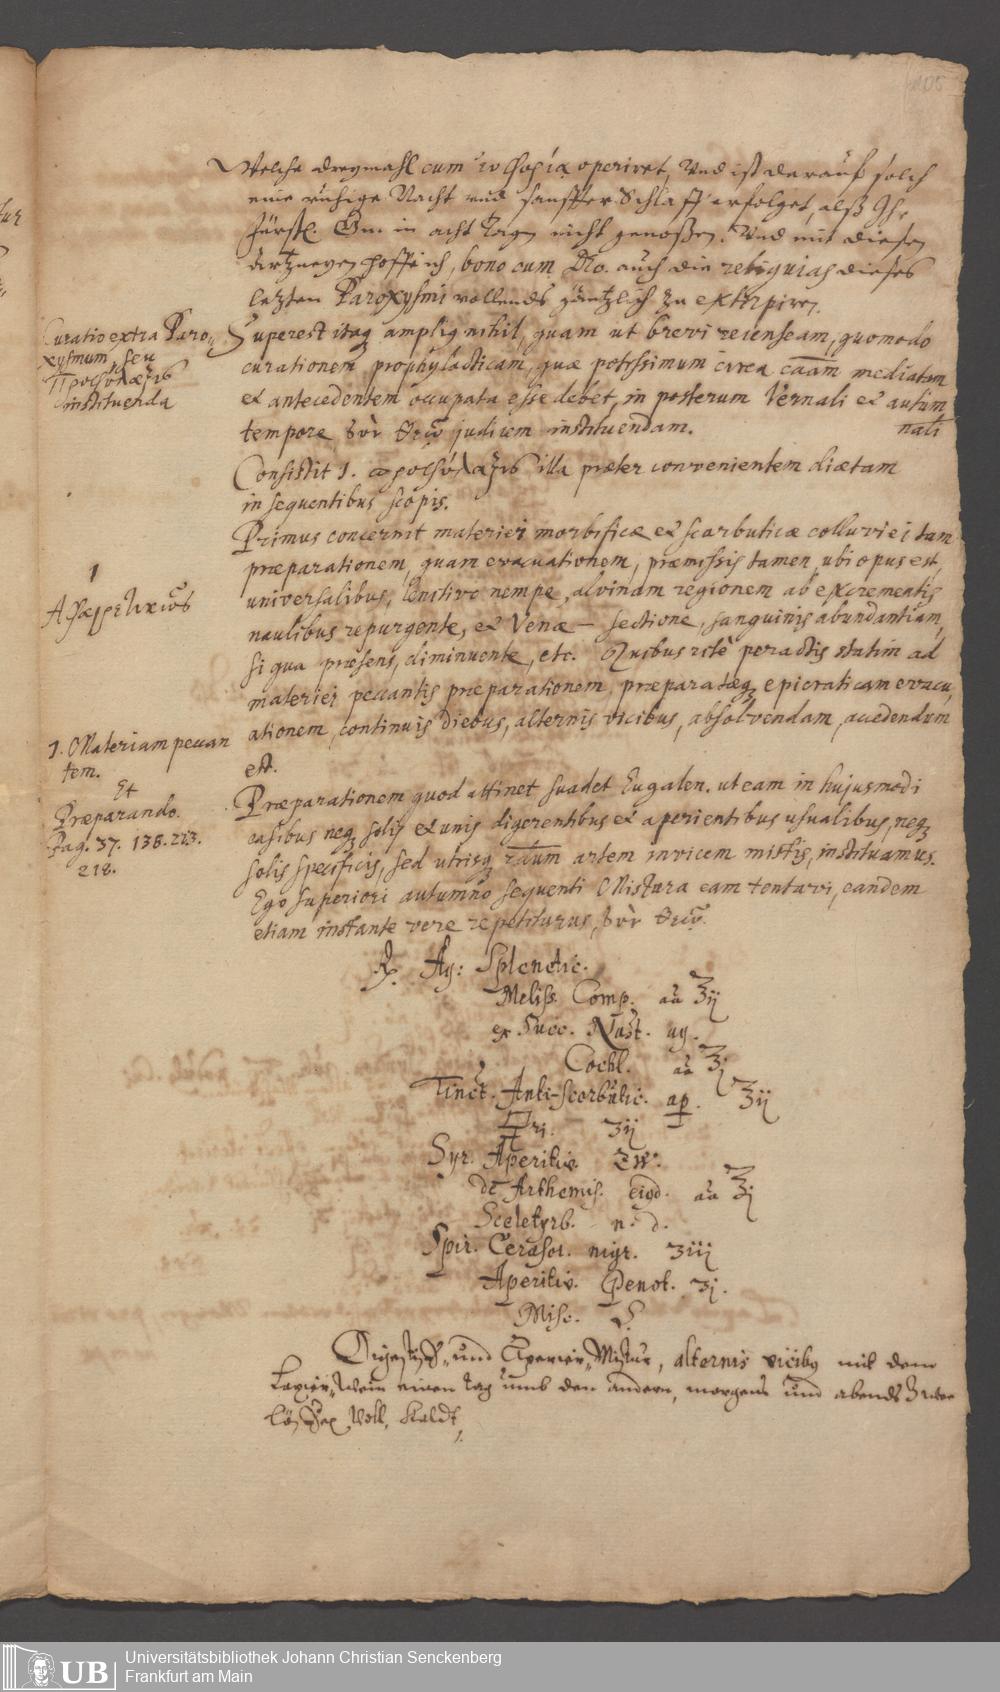 105
Welche dreymahl cum εὐφορίᾳ operiret, Und ist darauf solch
eine ruhige Nacht und sanffter Schlaff erfolget, alß Ihr
Fürstl. Gn. in acht Tagen nicht genoßen. Und mit diesen
Artzneyen hoffe ich, bono cum Deo. auch die reliquias dieses
letzten Paroxysmi vollends gäntzlich zu extirpiren.
Curatio extra Paro-
xysmum, seu
Προφύλαξις
instituenda
Superest itaq; amplig nihil, quam ut brevi recenseam, quomodo
curationem prophylacticam, quæ potissimum circa caam mediatam
et antecedentem occupata esse debet, in posterum Vernali et autum
nali
tempore, σὺν Θεῷ judicem instituendam.
Consistit J. προφύλαξις illa præter convenientem diætam
in sequentibus scopis.
Primus concernit materiei morbificæ et scorbuticæ colluviei tam
præparationem, quam evacuationem, præmissis tamen, ubi opus est,
universalibus, lenitivo nempe, alvinam regionem ab excrementis
naulibus repurgente, et Venæ - sectione, sanguinis abundantiam,
si qua præsens, diminuente, etc. Quibus ritè peractis statim ad
materiei peccantis præparationem, præparatæq; epicraticam evacu,
ationem, continuis diebus, alternis vicibus, absolvendam, accedendum
est.
1
1. Materiam peccan
tem.
Et
Præparando.
Pag. 37. 138. 213.
218.
Præparationem quod attinet suadet Eugalen. ut eam in hujusmodi
casibus neq; solis et unis digerentibus et aperientibus usualibus, neq;
solis specificis, sed utrisq; sdum artem invicem mistis, instituamus.
Ego superiori autumno sequenti Mistura eam tentavi, eandem
etiam instante vere repetiturus, σὺν Θεῷ.
℞. Aq: Splenetic.
Meliss. Comp. aa ℥ij
ex Succ. Nast. aq.
Cochl. aa ℥j
Tinct. Anti-scorbutic. ap. ℥ij
ʒij
Syr. Aperitiv.
de Arthemis. aa ℥j
Sceletyrb. n. d.
Spir. Cerasor. nigr. ʒiij
Aperitiv. Penot. ʒj.
Misc. S.
Digestiff- und Aperier-Mistur, alternis vicibg mit dem
Laxier-Wein einen tag umb den andern, morgens und abends zwee
Löffel Voll, Kaldt,
UB
Universitätsbibliothek Johann Christian Senckenberg
Frankfurt am Main